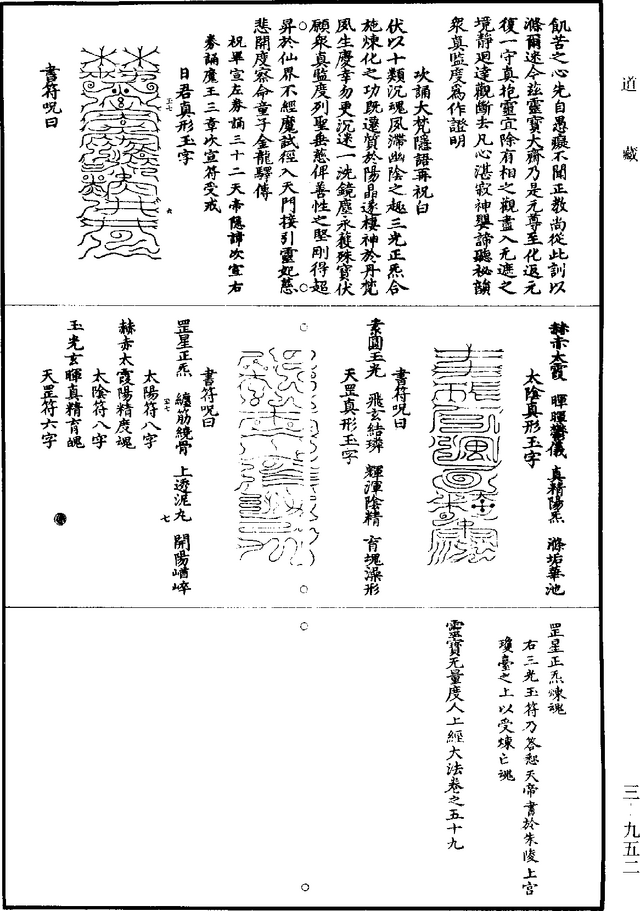 飢苦之心先自愚癡不聞正教尚從此訓以
滌爾迷今茲靈寶大齋乃是元尊至化返元
復一守真抱靈宜除有相之觀盡入无遮之
境靜迴達觀斷去凡心湛寂神嬰諦聽祕韻
眾真監度爲作證明
次誦大梵隱語再祝曰
伏以十類沉魂夙滯幽陰之趣三光正炁合
施煉化之功既遷質於陽晶遂棲神於丹梵
風生慶幸勿更沉迷一洗鏡塵永獲珠寶伏
願眾真監度列聖垂慈俾善性之堅剛得超
昇於仙界不經魔試徑入天門接引靈妃慈
悲開度察命童子金龍驛傳
祝畢宣左券誦三十二天帝隱諱次宣右
券誦魔王三章次宣符受戒
日君真形玉字
書符呪曰
赫赤太霞 暉暉鬱儀 真精陽炁 滌垢華池
太陰真形玉字
書符呪曰
素圓玉光 飛玄結璘 輝渾陰精 育魂澡形
天罡真形玉字
書符呪曰
罡星正炁 纏筋繞骨 上透泥丸 開陽崷崒
太陽符八字
赫赤太霞陽精度魂
太陰符八字
玉光玄暉真精育魂
天罡符六字
罡星正炁煉魂
右三光玉符乃答恕天帝書於朱陵上宮
瓊臺之上以受煉亡魂
靈寶无量度人上經大法卷之五十九
道藏
三·九五二